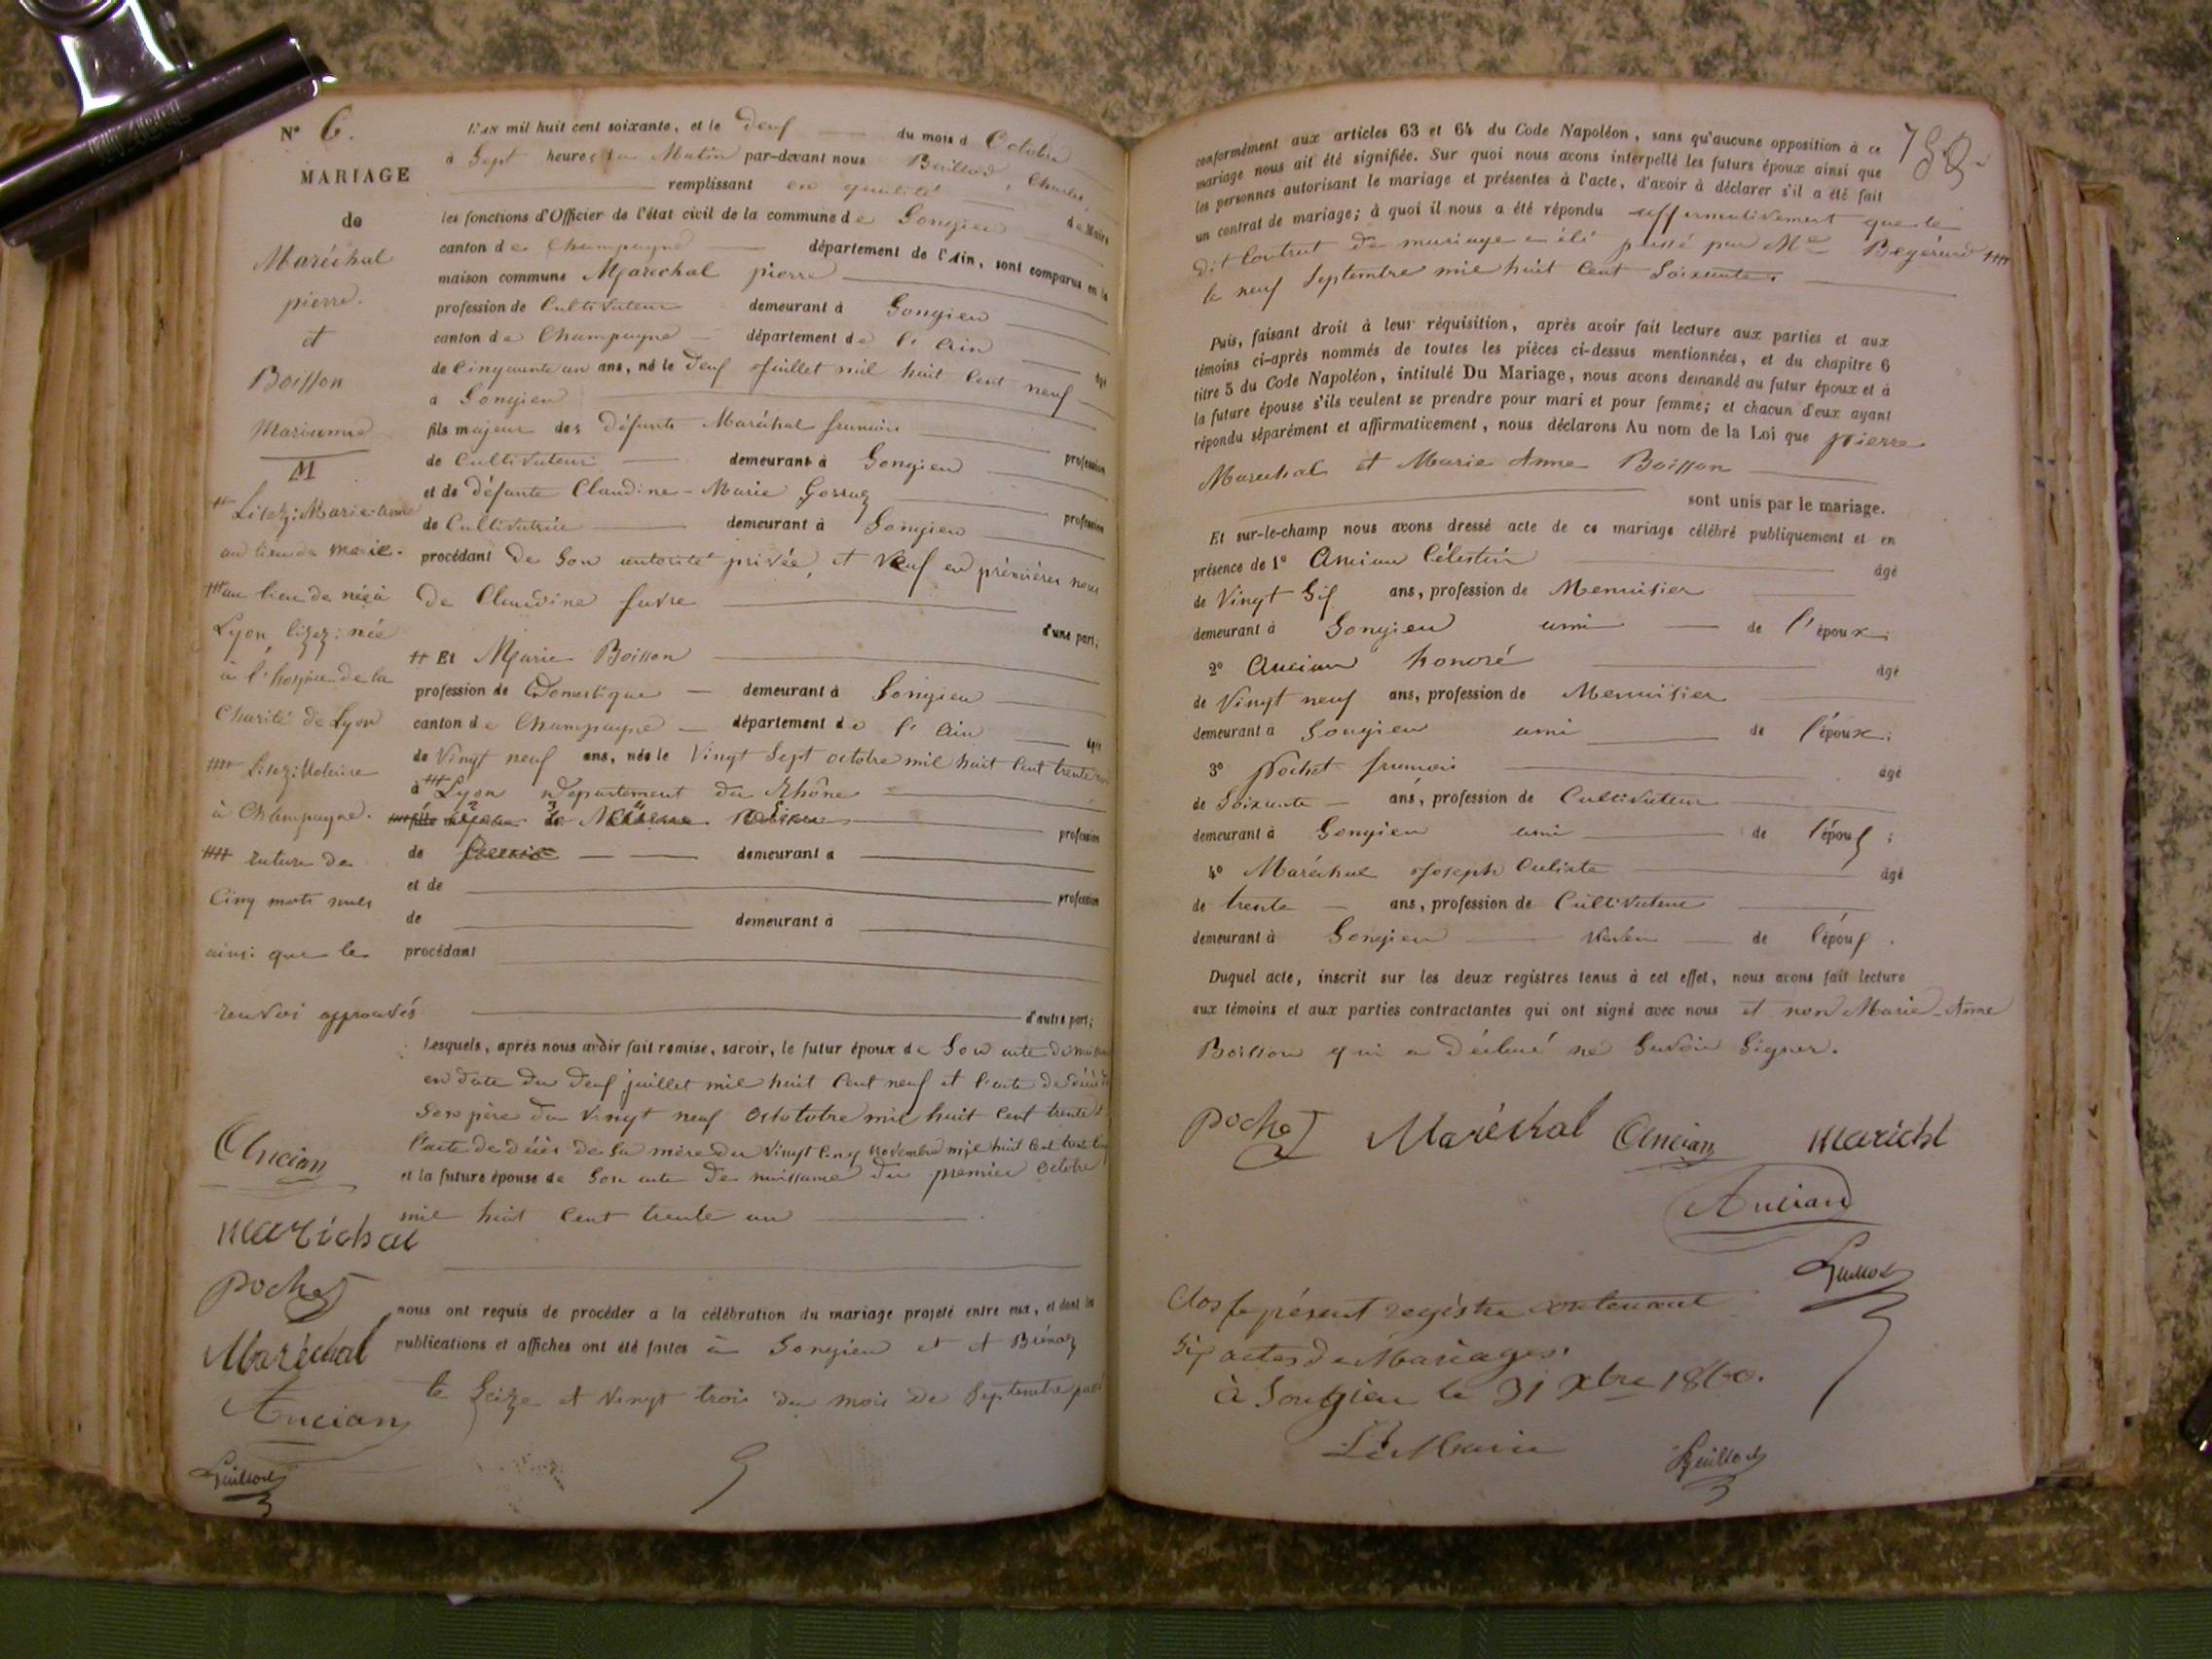 N° 6.
MARIAGE
de
Maréchal
pierre.
et
Boisson
Marianne
M
++ Lisez: Marie-anne
au lieu de Marie.
+++ au lieu de née à
Lyon, lisez: née
à l'hospice de la
Charité de Lyon
++++ Lisez: Notaire
à Champagne.
rature de
Cinq mots nuls
ainsi que les
renvoi approuvés
Ancian
Maréchal
Pochet
Maréchal
Ancian
L'AN mil huit cent soixante, et le deux du mois d Octobre
à Sept heures du Matin par-devant nous Charles
remplissant en qualité de Maire
les fonctions d'Officier de l'état civil de la commune de Songieu
canton de Champagne département de l'Ain, sont comparus en la
maison commune Marechal pierre
profession de Cultivateur demeurant à Songieu
canton de Champagne département de l'Ain
âgé
de Cinquante un ans, né le deux Juillet mil huit Cent neuf
à Songieu
fils majeur des défunts Maréchal francois
profession
de Cultivateur demeurant à Songieu
et de défunte Claudine-Marie
profession
de Cultivatrice demeurant à Songieu
procédant de Son autorité privée, et Veuf en prémières noces
de Claudine favre
d'une part;
++ Et Marie Boisson
profession de Domestique demeurant à Songieu
canton de Champagne département de l'Ain
âgée
de Vingt neuf ans, née le Vingt Sept octobre mil huit Cent trente
à +++ Lyon département du Rhône
profession
de demeurant à
et de profession
de demeurant à
procédant
d'autre part;
Lesquels, après nous avoir fait remise, savoir, le futur époux de Son acte de naissance
en date du deux juillet mil huit Cent neuf et l'acte de décès de
Son père du Vingt neuf Octobre mil huit Cent trente
l'acte de décès de Sa mère du Vingt Cinq Novembre mil huit Cent
et la future épouse de Son acte de naissance du premier Octobre
mil huit Cent trente un
nous ont requis de procéder a la célébration du mariage projeté entre eux, et dont les
publications et affiches ont été faites à Songieu et
le Seize et Vingt trois du mois de Septembre
conformément aux articles 63 et 64 du Code Napoléon, sans qu'aucune opposition à ce
mariage nous ait été signifiée. Sur quoi nous avons interpellé les futurs époux ainsi que
les personnes autorisant le mariage et présentes à l'acte, d'avoir à déclarer s'il a été fait
un contrat de mariage; à quoi il nous a été répondu affirmativement que le
dit Contrat de mariage a été passé par Me ++++
le neuf Septembre mil huit Cent Soixante.
Puis, faisant droit à leur réquisition, après avoir fait lecture aux parties et aux
témoins ci-après nommés de toutes les pièces ci-dessus mentionnées, et du chapitre 6
titre 5 du Code Napoléon, intitulé Du Mariage, nous avons demandé au futur époux et à
la future épouse s'ils veulent se prendre pour mari et pour femme; et chacun d'eux ayant
répondu séparément et affirmativement, nous déclarons Au nom de la Loi que Pierre
Marechal et Marie Anne Boisson
sont unis par le mariage.
Et sur-le-champ nous avons dressé acte de ce mariage célébré publiquement et en
présence de 1° Ancian Célestin âgé
de Vingt Six ans, profession de Menuisier
demeurant à Songieu ami de l'époux;
2° Ancian honoré âgé
de Vingt neuf ans, profession de Menuisier
demeurant à Songieu ami de l'époux;
3° Pochet francois âgé
de Soixante ans, profession de Cultivateur
demeurant à Songieu ami de l'époux;
4° Maréchal Joseph Calixte âgé
de trente ans, profession de Cultivateur
demeurant à Songieu de l'époux.
Duquel acte, inscrit sur les deux registres tenus à cet effet, nous avons fait lecture
aux témoins et aux parties contractantes qui ont signé avec nous et non Marie-Anne
Boisson qui a déclaré ne Savoir Signer.
Pochet Maréchal Ancian Maréchal
Ancian
Clos le présent registre contenant
Six actes de Mariages.
à Songieu le 31 Xbre 1860.
Le Maire